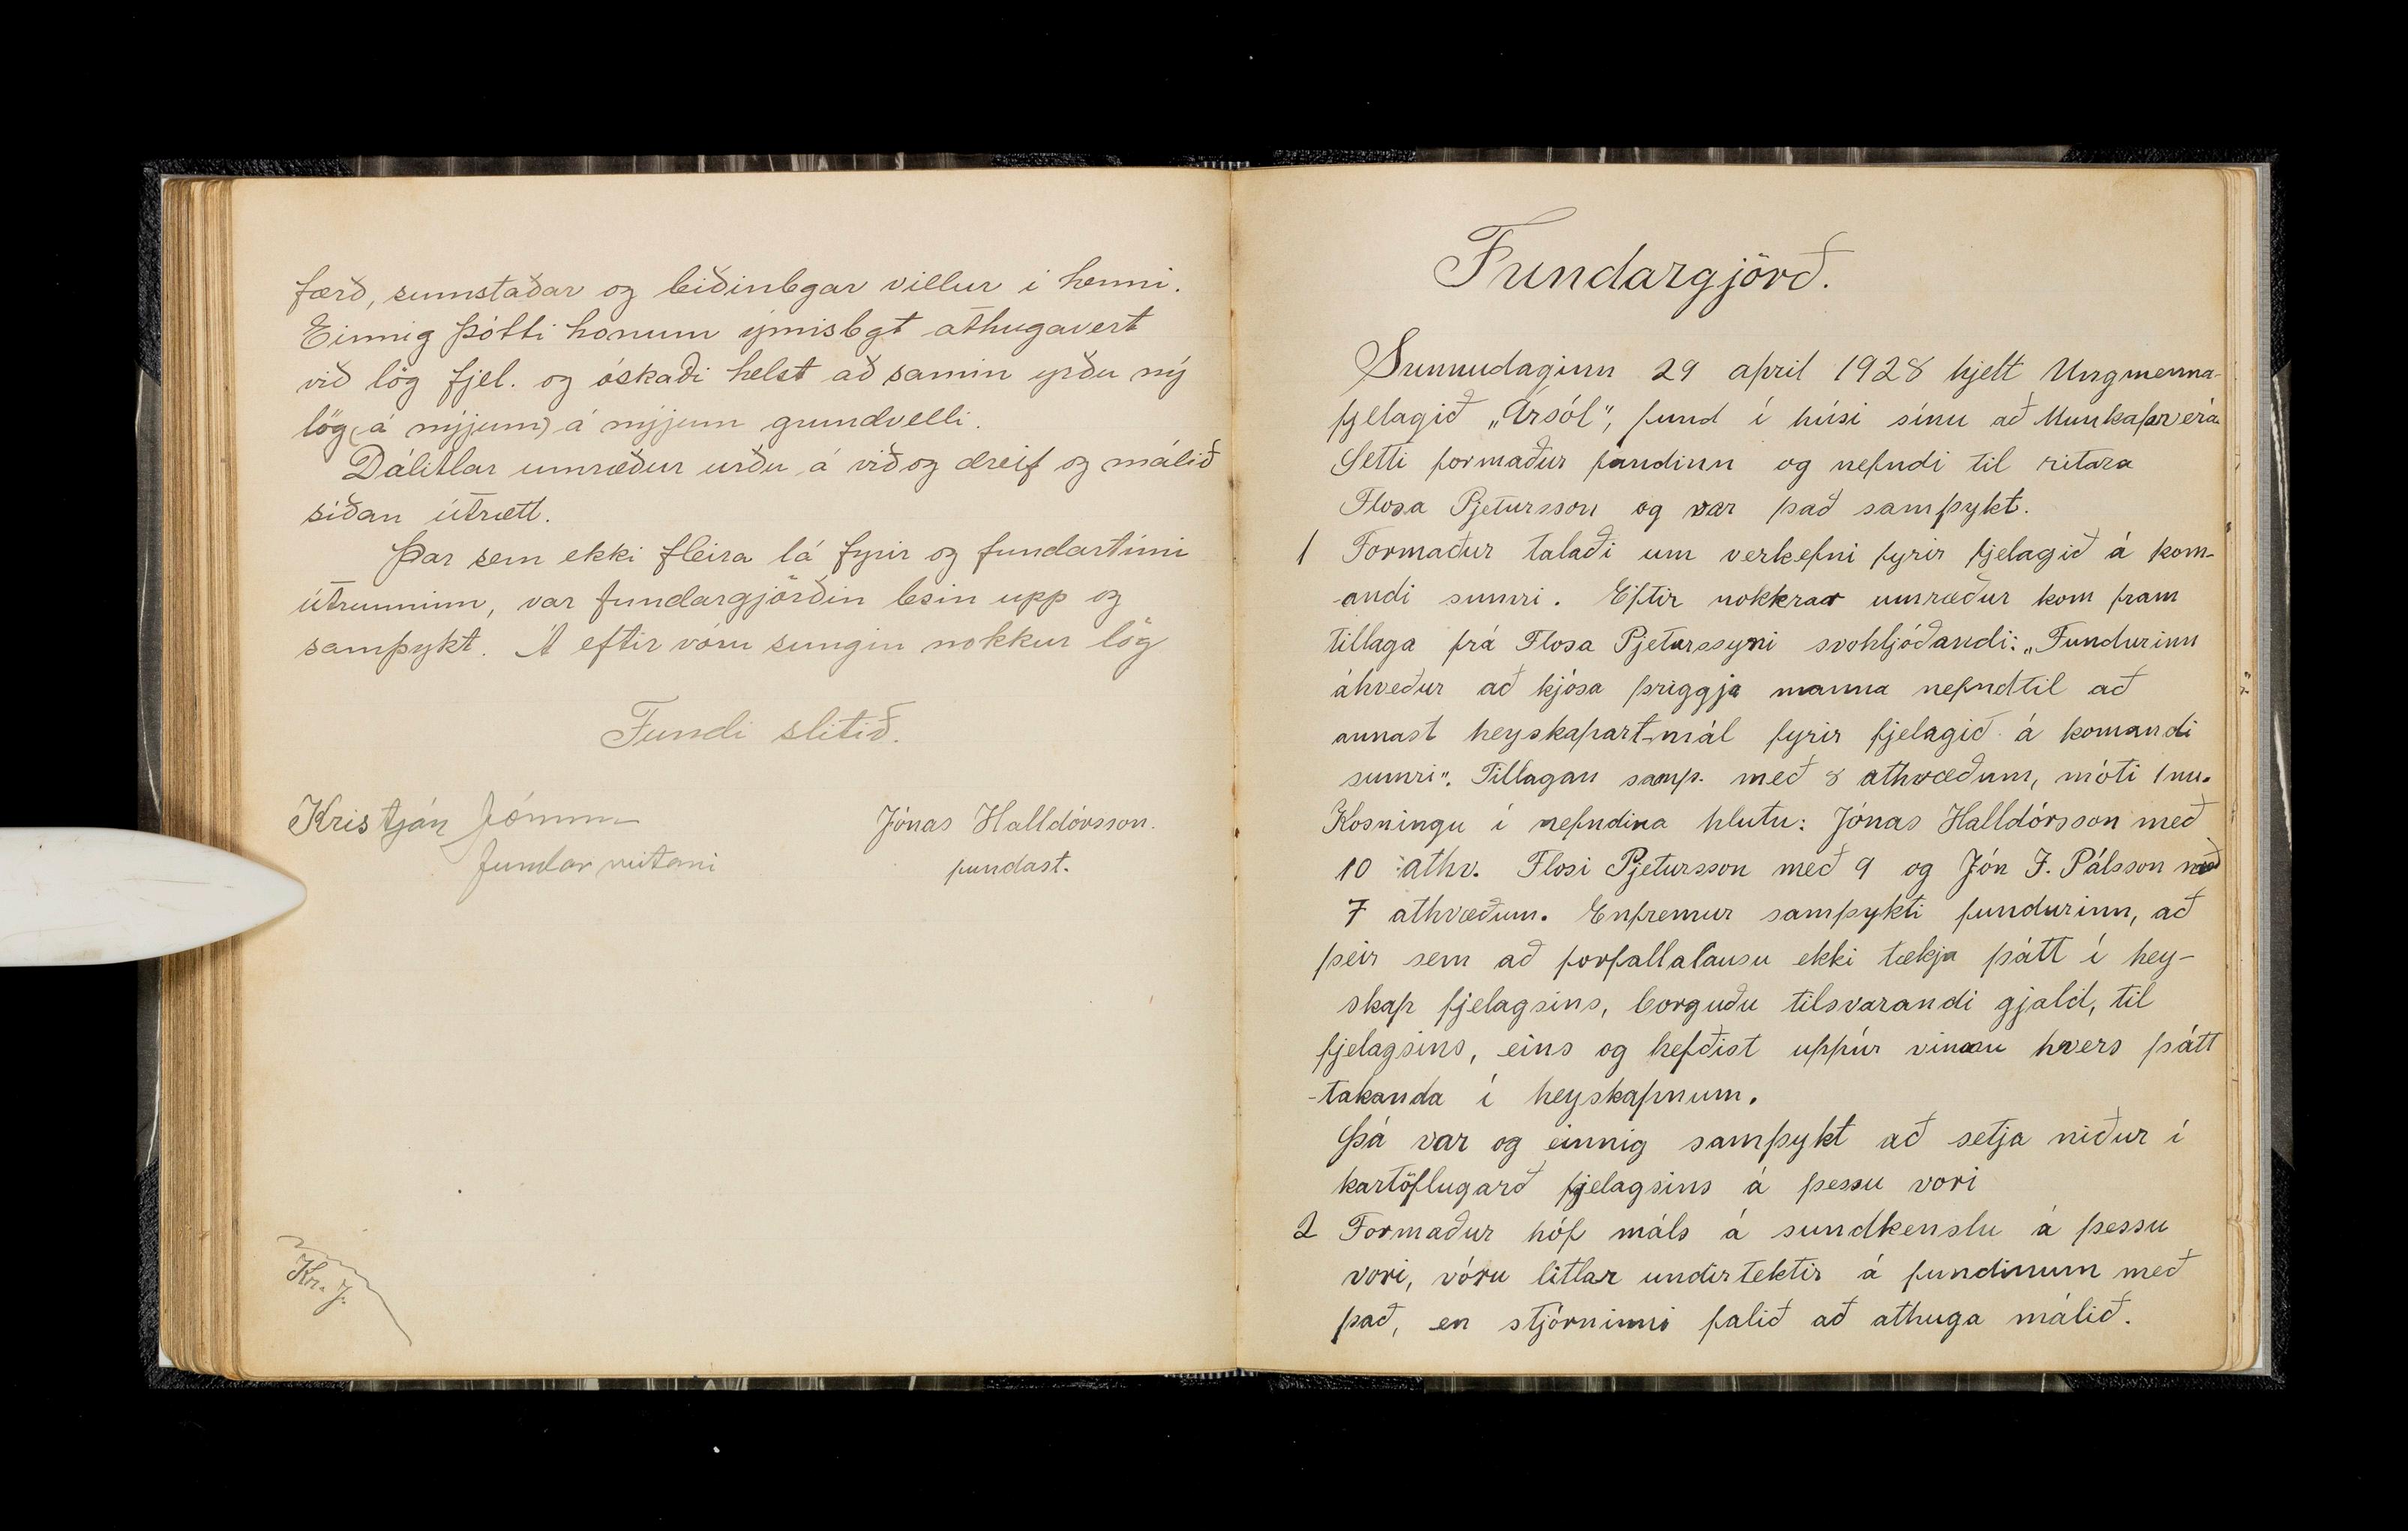 færð, sumstaðar og leiðinlegar villur i henni.
Einnig þótti honum ýmislegt athugavert
við lög fjel. og óskaði helst að samin yrðu ný
lög (á nýjum) á nýjum grundvelli.
Dálitlar umræður urðu á við og dreif og málið
síðan útrætt.
Þar sem ekki fleira lá fyrir og fundartími
útrunninn, var fundargjörðin lesin upp og
samþykt. Á eftir vóru sungin nokkur lög
Fundi slitið.
Kristján Jónsson
Jónas Halldórsson.
fundarritari
fundast.
Kr. J.
Fundargjörð.
Sunnudaginn 29 april 1928 hjelt Ungmenna-
fjelagið „Ársól", fund í húsi sínu að Munkaþverá.
Setti formaður fundinn og nefndi til ritara
Flosa Pjetursson og var það samþykt.
1 Formaður talaði um verkefni fyrir fjelagið á kom-
-andi sumri. Eftir nokkrar umræður kom fram
tillaga frá Flosa Pjeturssyni svohljóðandi: „Fundurinn
ákveður að kjósa þriggja manna nefnd til að
annast heyskapart-mál fyrir fjelagið á komandi
sumri". Tillagan samþ. með 8 athvæðum, móti 1nu.
Kosningu í nefndina hlutu: Jónas Halldórsson með
10 athv. Flosi Pjetursson með 9 og Jón F. Pálsson með
7 athvæðum. Enfremur samþykti fundurinn, að
þeir sem að forfallalausu ekki tækja þátt í hey-
skap fjelagsins, borguðu tilsvarandi gjald, til
fjelagsins, eins og hefðist uppúr vinnu hvers þátt
-takanda í heyskapnum.
Þá var og einnig samþykt að setja niður í
kartöflugarð fjelagsins á þessu vori
2 Formaður hóf máls á sundkenslu á þessu
vori, vóru litlar undirtektir á fundinum með
það, en stjórninni falið að athuga málið.